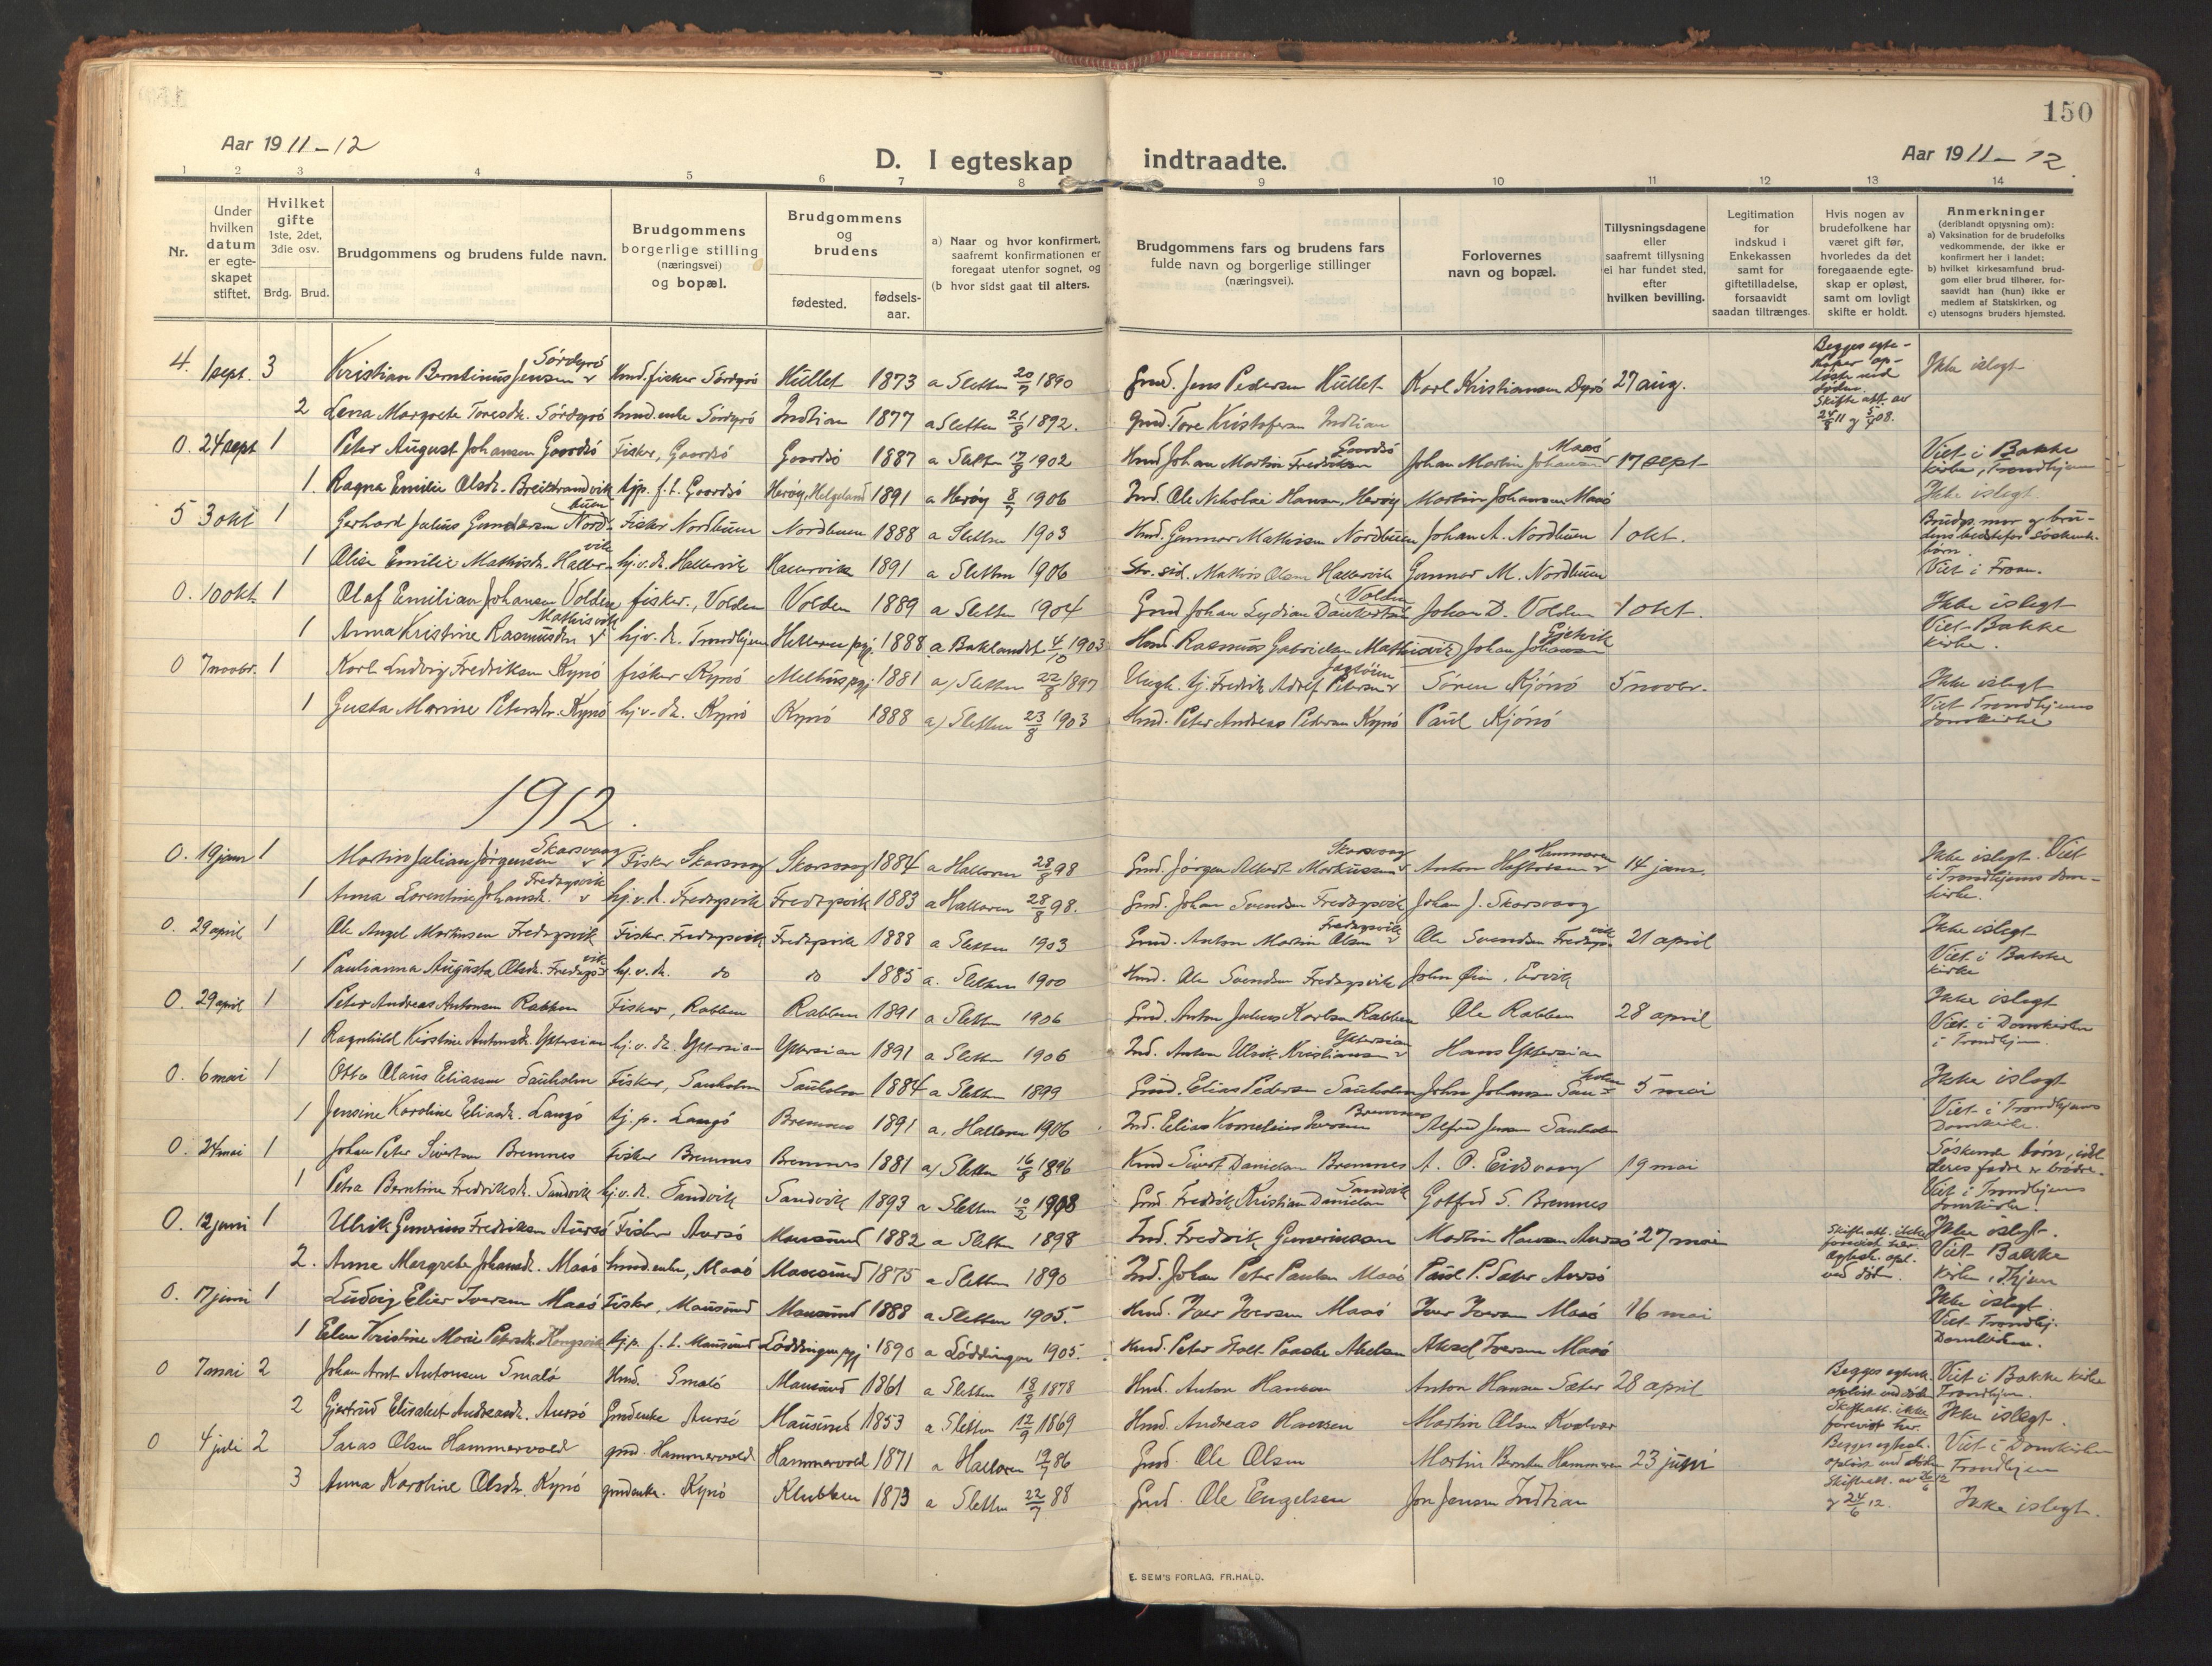 150
Aar 1911-12
D. I egteskap indtraadte.
Aar 1911-12
1 2 3 4 5 6 7 8 9 10 11 12 13 14
Nr.
Under hvilken datum er egteskapet stiftet.
Hvilket gifte 1ste, 2det, 3die osv.
Brdg. Brud.
Brudgommens og brudens fulde navn.
Brudgommens borgerlige stilling (næringsvei) og bopæl.
Brudgommens og brudens
fødested.
fødselsaar.
a) Naar og hvor konfirmert, saafremt konfirmationen er foregaat utenfor sognet, og
(b hvor sidst gaat til alters.
Brudgommens fars og brudens fars fulde navn og borgerlige stillinger (næringsvei).
Forlovernes navn og bopæl.
Tillysningsdagene eller saafremt tillysning ei har fundet sted, efter hvilken bevilling.
Legitimation for indskud i Enkekassen samt for giftetilladelse, forsaavidt saadan tiltrænges.
Hvis nogen av brudefolkene har været gift før, hvorledes da det foregaaende egteskap er opløst, samt om lovligt skifte er holdt.
Anmerkninger (deriblandt oplysning om):
a) Vaksination for de brudefolks vedkommende, der ikke er konfirmert her i landet;
b) hvilket kirkesamfund brudgom eller brud tilhører, forsaavidt han (hun) ikke er medlem af Statskirken, og
c) utensogns bruders hjemsted.
4. 1 sept. 3 Kristian Berntinus Jensen Sördyrö Hmd. fisker Sördyrö Hullet 1873 a Sletten 20/7 1890 Gmd. Jens Pedersen Hullet Karl Kristiansen Dyrö 27 aug. Ikke islegt
2 Lena Margrete Toresdr. Sördyrö hmd.enke Sördyrö Indtian 1877 a Sletten 21/8 1892. Gmd. Tore Kristofersen Indtian
0. 24 sept 1 Peter August Johansen Gaardsö Fisker, Gaardsö Gaardsö 1887 a Sletten 17/8 1902 Hmd Johan Martin Fredriksen Gaardsö Johan Martin Johansen Masö 17 sept Viet i Bakke kirke, Trondhjem
1. Ragna Emilie Olsdr. Breistrandvik tjp. f.t. Gaardsö Heröy, Helgeland 1891 a Heröy 8/7 1906 Ind. Ole Nikolai Hansen, Heröy Martin Johansen Masö Ikke islegt
5 3 okt 1 Gerhard Julius Gundersen Nordbuen Fisker Nordbuen Nordbuen 1888 a Sletten 1903 Hmd. Gunnar Mathisen Nordbuen Johan A. Nordbuen 1 okt. Brudgs. mor og brudens bedstefor söskendebörn.
1 Olise Emilie Mathisdr. Hallervik hj.v.dr. Hallervik Hallervik 1891 a Sletten 1906 Mathis Olsen Hallervik Gunnar M. Nordbuen Viet i Froan.
0. 10 okt. 1 Olaf Emilian Johansen Volden fisker, Volden Volden 1889 a Sletten 1904 Gmd Johan Lydian Volden Johan D. Volden 1 okt. Ikke islegt
1 Anna Kristine Rasmusdr. Mathisvik hj.v.dr. Trondhjem Hitteren pgj. 1888 a Baklandet 4/10 1903 Hmd. Rasmus Gabrielsen Mathisvik Johan Johansen Viet Bakke kirke.
0 7 novbr. 1 Karl Ludvig Fredriksen Kynö fisker Kynö Melhus pgj. 1881 a) Sletten 22/8 1897 Ungk. tj. Fredrik Adolf Petersen Sören Kjönö 5 novbr. Ikke islegt
1 Gusta Marine Petersdr. Kynö hj.v.dr. Kynö Kynö 1888 a) Sletten 23/8 1903 Hmd. Peter Andreas Pedersen Kynö Paul Kjönö Viet Trondhjems domkirke
1912.
0. 19 janr 1 Martin Julian Jörgensen Skarsvaag Fisker Skarsvaag Skarsvaag 1884 a Hallaren 28/8 98 Gmd. Jörgen Albert Markussen Skarsvaag Anton Hammeren 14 janr. Ikke islegt. Viet i Trondhjems domkirke.
1 Anna Lorentine Johansdr. Fredagsvik hj.v.d. Fredagsvik Fredagsvik 1883 a Hallaren 28/8 98. Gmd. Johan Svendsen Fredagsvik Johan J. Skarsvaag
0. 29 april 1 Ole Angel Martinsen Fredagsvik Fisker Fredagsvik Fredagsvik 1888 a Sletten 1903 Gmd. Anton Martin Olsen Fredagsvik Ole Svendsen Fredagsvik 21 april Ikke islegt
1 Paulianna Augusta Olsdr. Fredagsvik hj.v.d. do do 1885 a. Sletten 1900 Hmd. Ole Svendsen Fredagsvik John Öien, Ervik Viet i Bakke kirke
0. 29 april 1 Peter Andreas Antonsen Rabben Fisker, Rabben Rabben 1891 a Sletten 1906 Gmd. Anton Julius Karlsen Rabben Ole Rabben 28 april Ikke islegt
1 Ragnhild Kirstine Antonsdr. Yttersian hj.v.dr. Yttersian Yttersian 1891 a Sletten 1906 Ind. Anton Ulrik Kristiansen Yttersian Hans Yttersian Viet i Domkirken i Trondhjem.
0. 6 mai 1 Otto Olaus Eliassen Sauholm Fisker, Sauholm Sauholm 1884 a Sletten 1899 Gmd. Elias Pedersen Sauholm John Johansen Sauholm 5 mai Ikke islegt
1 Jensine Karoline Eliasdr. Langö tj.p. Langö Bremnes 1891 a. Hallaren 1906 Ind. Elias Kornelius Iversen Bremnes Alfred Jensen Sauholm Viet i Trondhjems Domkirke.
0. 24 mai 1 Johan Peter Sivertsen Bremnes Fisker Bremnes Bremnes 1881 a) Sletten 16/8 1896 Hmd Sivert Danielsen Bremnes A. O. Eidsvaag 19 mai Söskende börn, idet deres fædre er brödre.
1 Petra Berntine Fredriksdr. Sandvik hj.v.dr. Sandvik Sandvik 1893 a Sletten 10/2 1908 Gmd. Fredrik Kristian Danielsen Sandvik Gotfred S. Bremnes Viet i Trondhjems domkirke.
0. 12 juni 1 Ulrik Gunerius Fredriksen Aursö Fisker Aursö Mausund 1882 a Sletten 1898 Ind. Fredrik Gunerius­sen Martin Hansen Aursö 27 mai Skifteatt. ikke forevist her. Ægtesk. opl. ved död. Ikke islegt.
2. Anne Margrete Johansdr. Masö hmd.enke, Masö Mausund 1875 a Sletten 1890 Ind. Johan Peter Paulsen Masö Paul P. Sæter Aursö Viet Bakke kirke, Thjem
0. 17 juni 1 Ludvig Elier Iversen Masö Fisker, Mausund Mausund 1888 a Sletten 1905. Hmd. Iver Iversen Masö Iver Iversen Masö 16 mai Ikke islegt.
1 Elen Kristine Marie Petersdr. Kongsvik tjp. f.t. Mausund Löddingen pgj. 1890 a Löddingen 1905. Hmd. Peter Holt Paasche Abelsen Aksel Iversen Masö Viet Trondhj. Domkirken.
0 7 mai 2 Johan Arnt Antonsen Smalö Hmd. Smalö Mausund 1861 a Sletten 18/8 1878 Hmd. Anton Hansen Anton Hansen Sæter 28 april Begges egtesk. oplöst ved död Skifteatt. ikke forevist her. Viet i Bakke kirke Trondhjem.
2 Gjertrud Elisabet Andreasdr. Aursö Gmdenke Aursö Mausund 1853 a Sletten 12/9 1869 Hmd. Andreas Hansen Martin Olsen Kvalvær Ikke islegt.
0 4 juli 2 Saras Olsen Hammervold gmd. Hammervold Hammervold 1871 a Hallaren 19/7 86 Gmd. Ole Olsen Martin Berntsen Hammeren 23 juni Begges egtesk. oplöst ved döden Viet i Domkirken Trondhjem
3 Anna Karoline Olsdr. Kynö gmdenke. Kynö Klubben 1873 a Sletten 22/7 88 Gmd. Ole Engelsen Jon Jensen Indtian Skifteatt. av 26/6 12 og 24/6 12. Ikke islegt.
E. SEM'S FORLAG, FR.HALD.